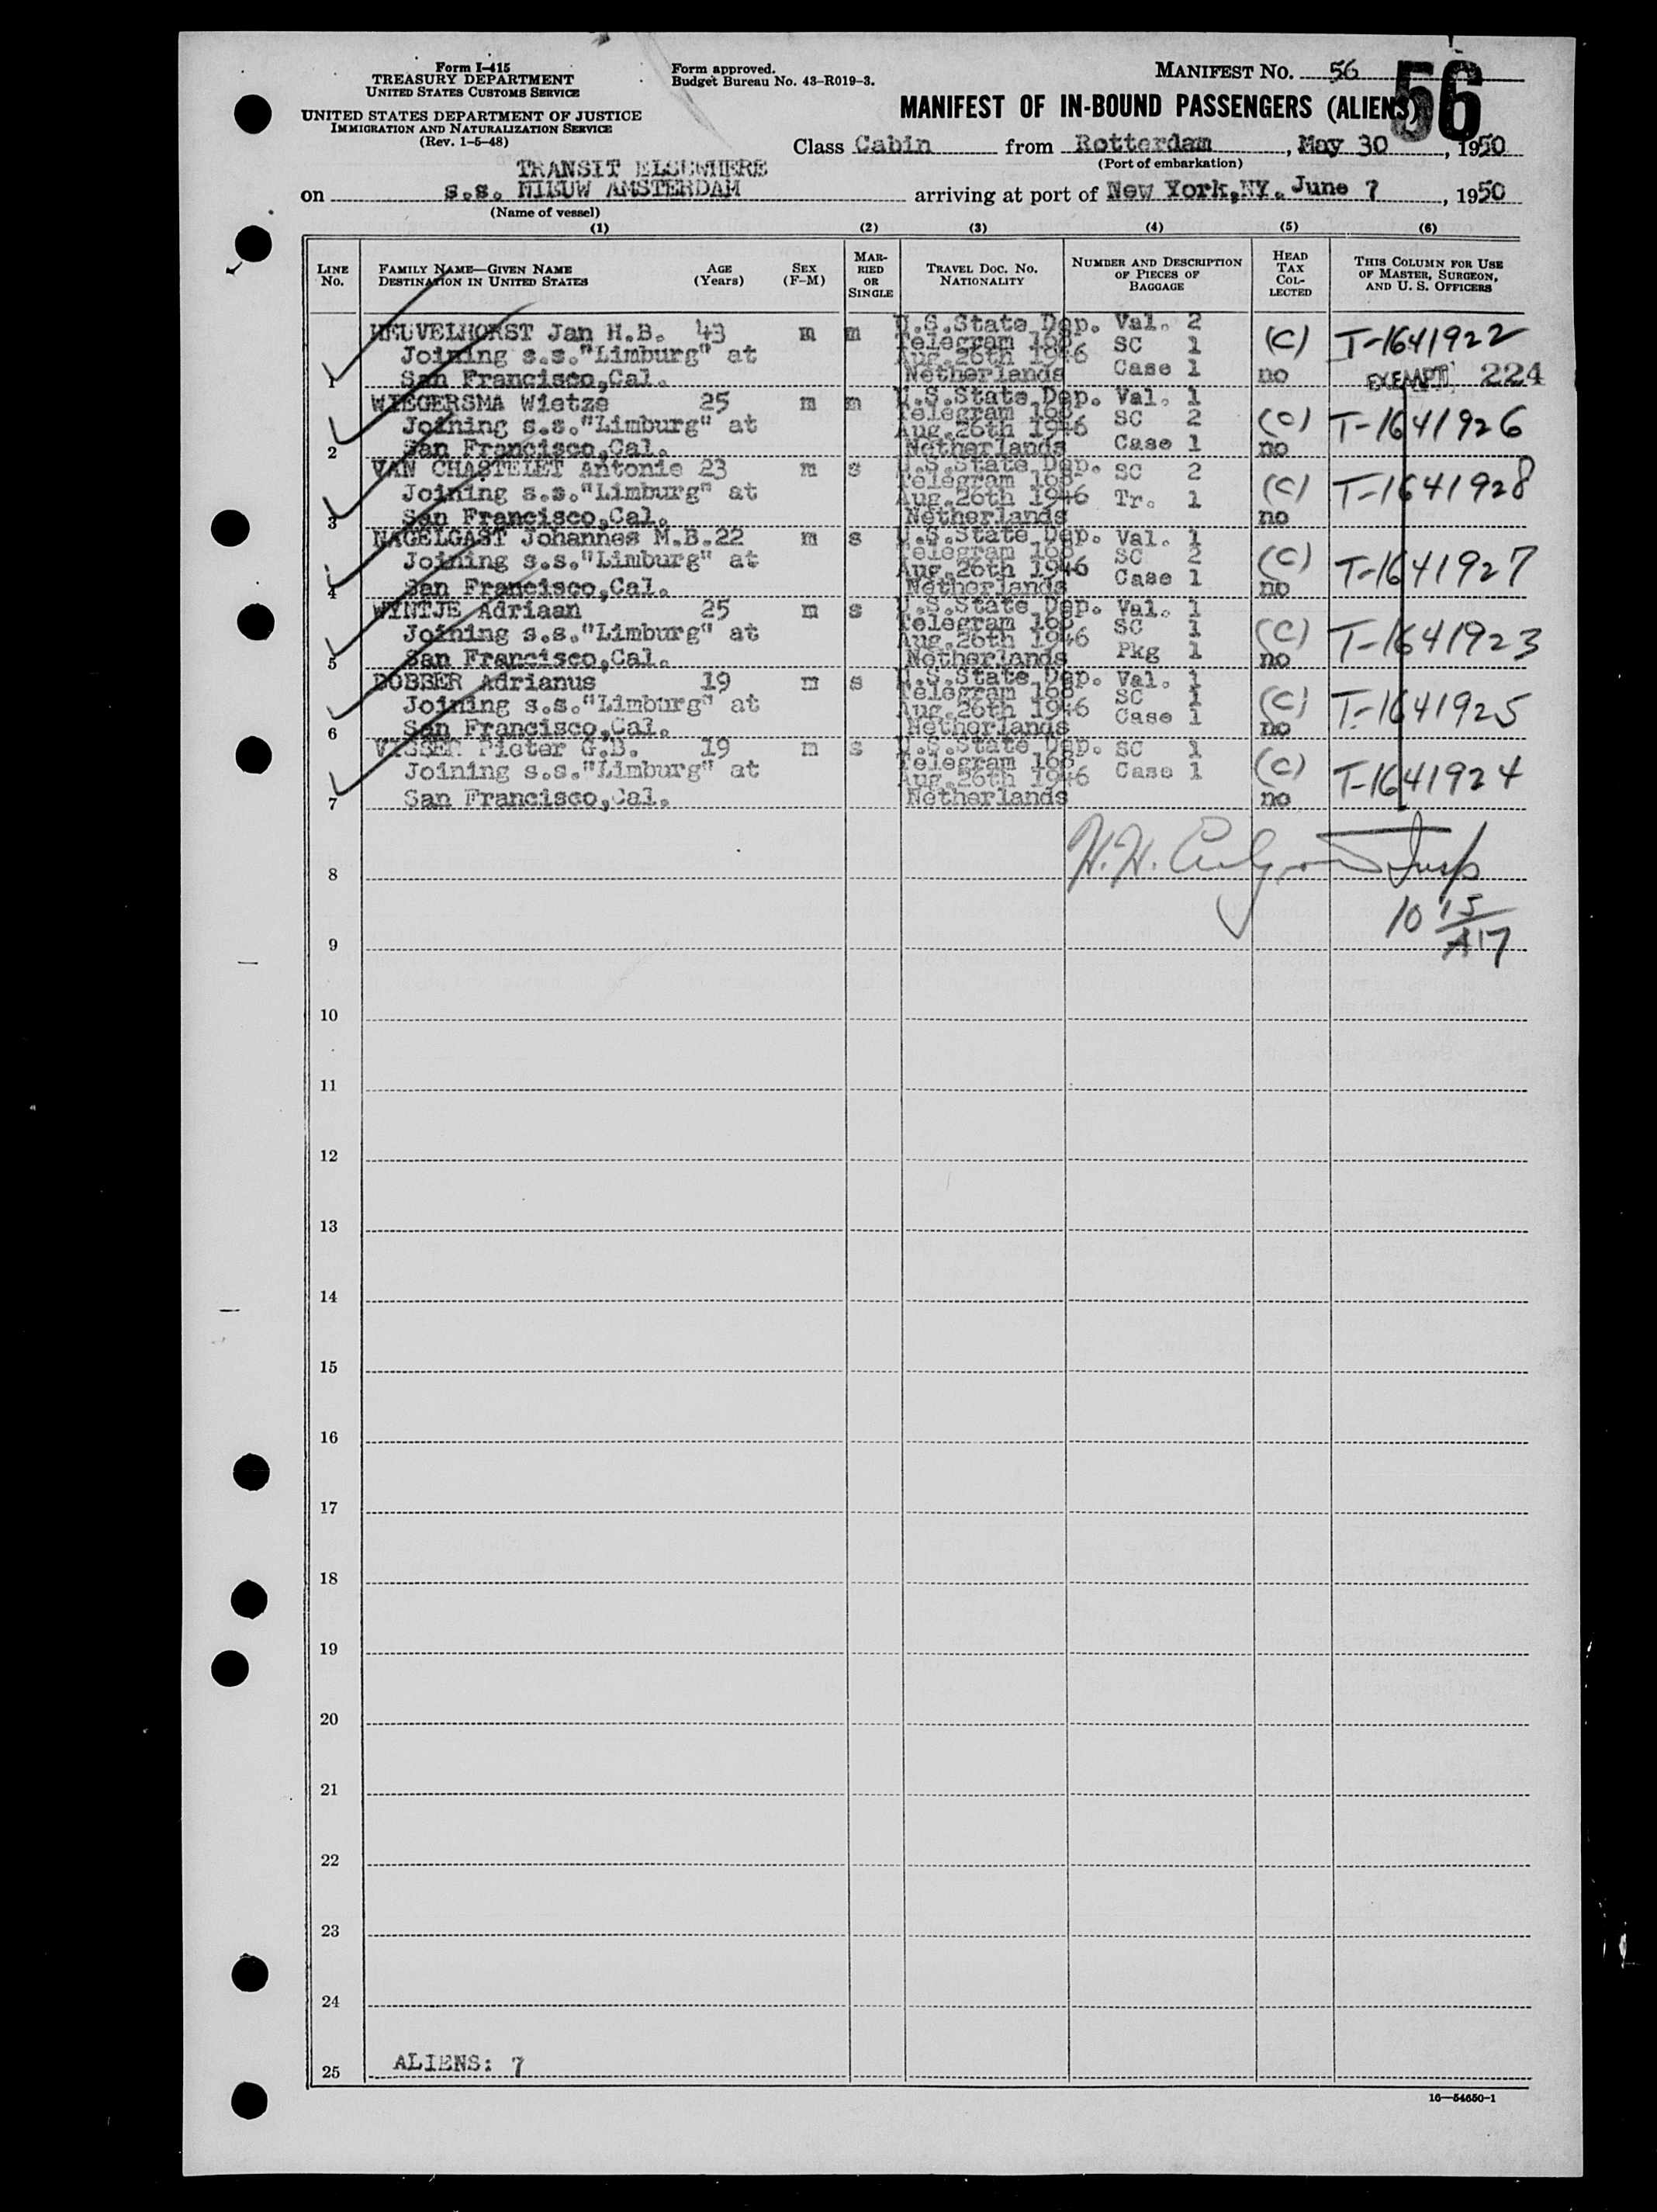 Form I-415
TREASURY DEPARTMENT
UNITED STATES CUSTOMS SERVICE
UNITED STATES DEPARTMENT OF JUSTICE
IMMIGRATION AND NATURALIZATION SERVICE
(Rev. 1-5-48)
Form approved.
Budget Bureau No. 43-R019-3.
MANIFEST NO. 56
56
MANIFEST OF IN-BOUND PASSENGERS (ALIENS)
Class Cabin from Rotterdam, May 30, 1950
(Port of embarkation)
TRANSIT ELSEWHERE
on s.s. NIEUW AMSTERDAM arriving at port of New York,NY. June 7, 1950
(Name of vessel)
(1) (2) (3) (4) (5) (6)
LINE NO. FAMILY NAME—GIVEN NAME DESTINATION IN UNITED STATES AGE (Years) SEX (F-M) MARRIED OR SINGLE TRAVEL DOC. NO. NATIONALITY NUMBER AND DESCRIPTION OF PIECES OF BAGGAGE HEAD TAX COLLECTED THIS COLUMN FOR USE OF MASTER, SURGEON, AND U. S. OFFICERS
HEUVELHORST Jan H.B. 43 m m U.S.State Dep. Val. 2
Joining s.s."Limburg" at Telegram 168 SC 1 (C) T-1641922
Aug.26th 1946
1 San Francisco,Cal. Netherlands Case 1 no EXEMPT 224
WIEGERSMA Wietze 25 m m U.S.State Dep. Val. 1
Joining s.s."Limburg" at Telegram 168 SC 2 (C) T-1641926
Aug.26th 1946
2 San Francisco,Cal. Netherlands Case 1 no
VAN CHASTELET Antonie 23 m s U.S.State Dep. SC 2
Joining s.s."Limburg" at Telegram 168 Tr. 1 (C) T-1641928
Aug.26th 1946
3 San Francisco,Cal. Netherlands no
NAGELGAST Johannes M.B. 22 m s U.S.State Dep. Val. 1
Joining s.s."Limburg" at Telegram 168 SC 2 (C) T-1641927
Aug.26th 1946 Case 1
4 San Francisco,Cal. Netherlands no
WYNTJE Adriaan 25 m s U.S.State Dep. Val. 1
Joining s.s."Limburg" at Telegram 168 SC 1 (C) T-1641923
Aug.26th 1946
5 San Francisco,Cal. Netherlands Pkg 1 no
DOBBER Adrianus 19 m s U.S.State Dep. Val. 1
Joining s.s."Limburg" at Telegram 168 SC 1 (C) T-1641925
Aug.26th 1946 Case 1
6 San Francisco,Cal. Netherlands no
VISSER Pieter G.B. 19 m s U.S.State Dep. SC 1
Joining s.s."Limburg" at Telegram 168 Case 1 (C) T-1641924
Aug.26th 1946
7 San Francisco,Cal. Netherlands no
8
9
10
11
12
13
14
15
16
17
18
19
20
21
22
23
24
25 ALIENS: 7
16—54650-1